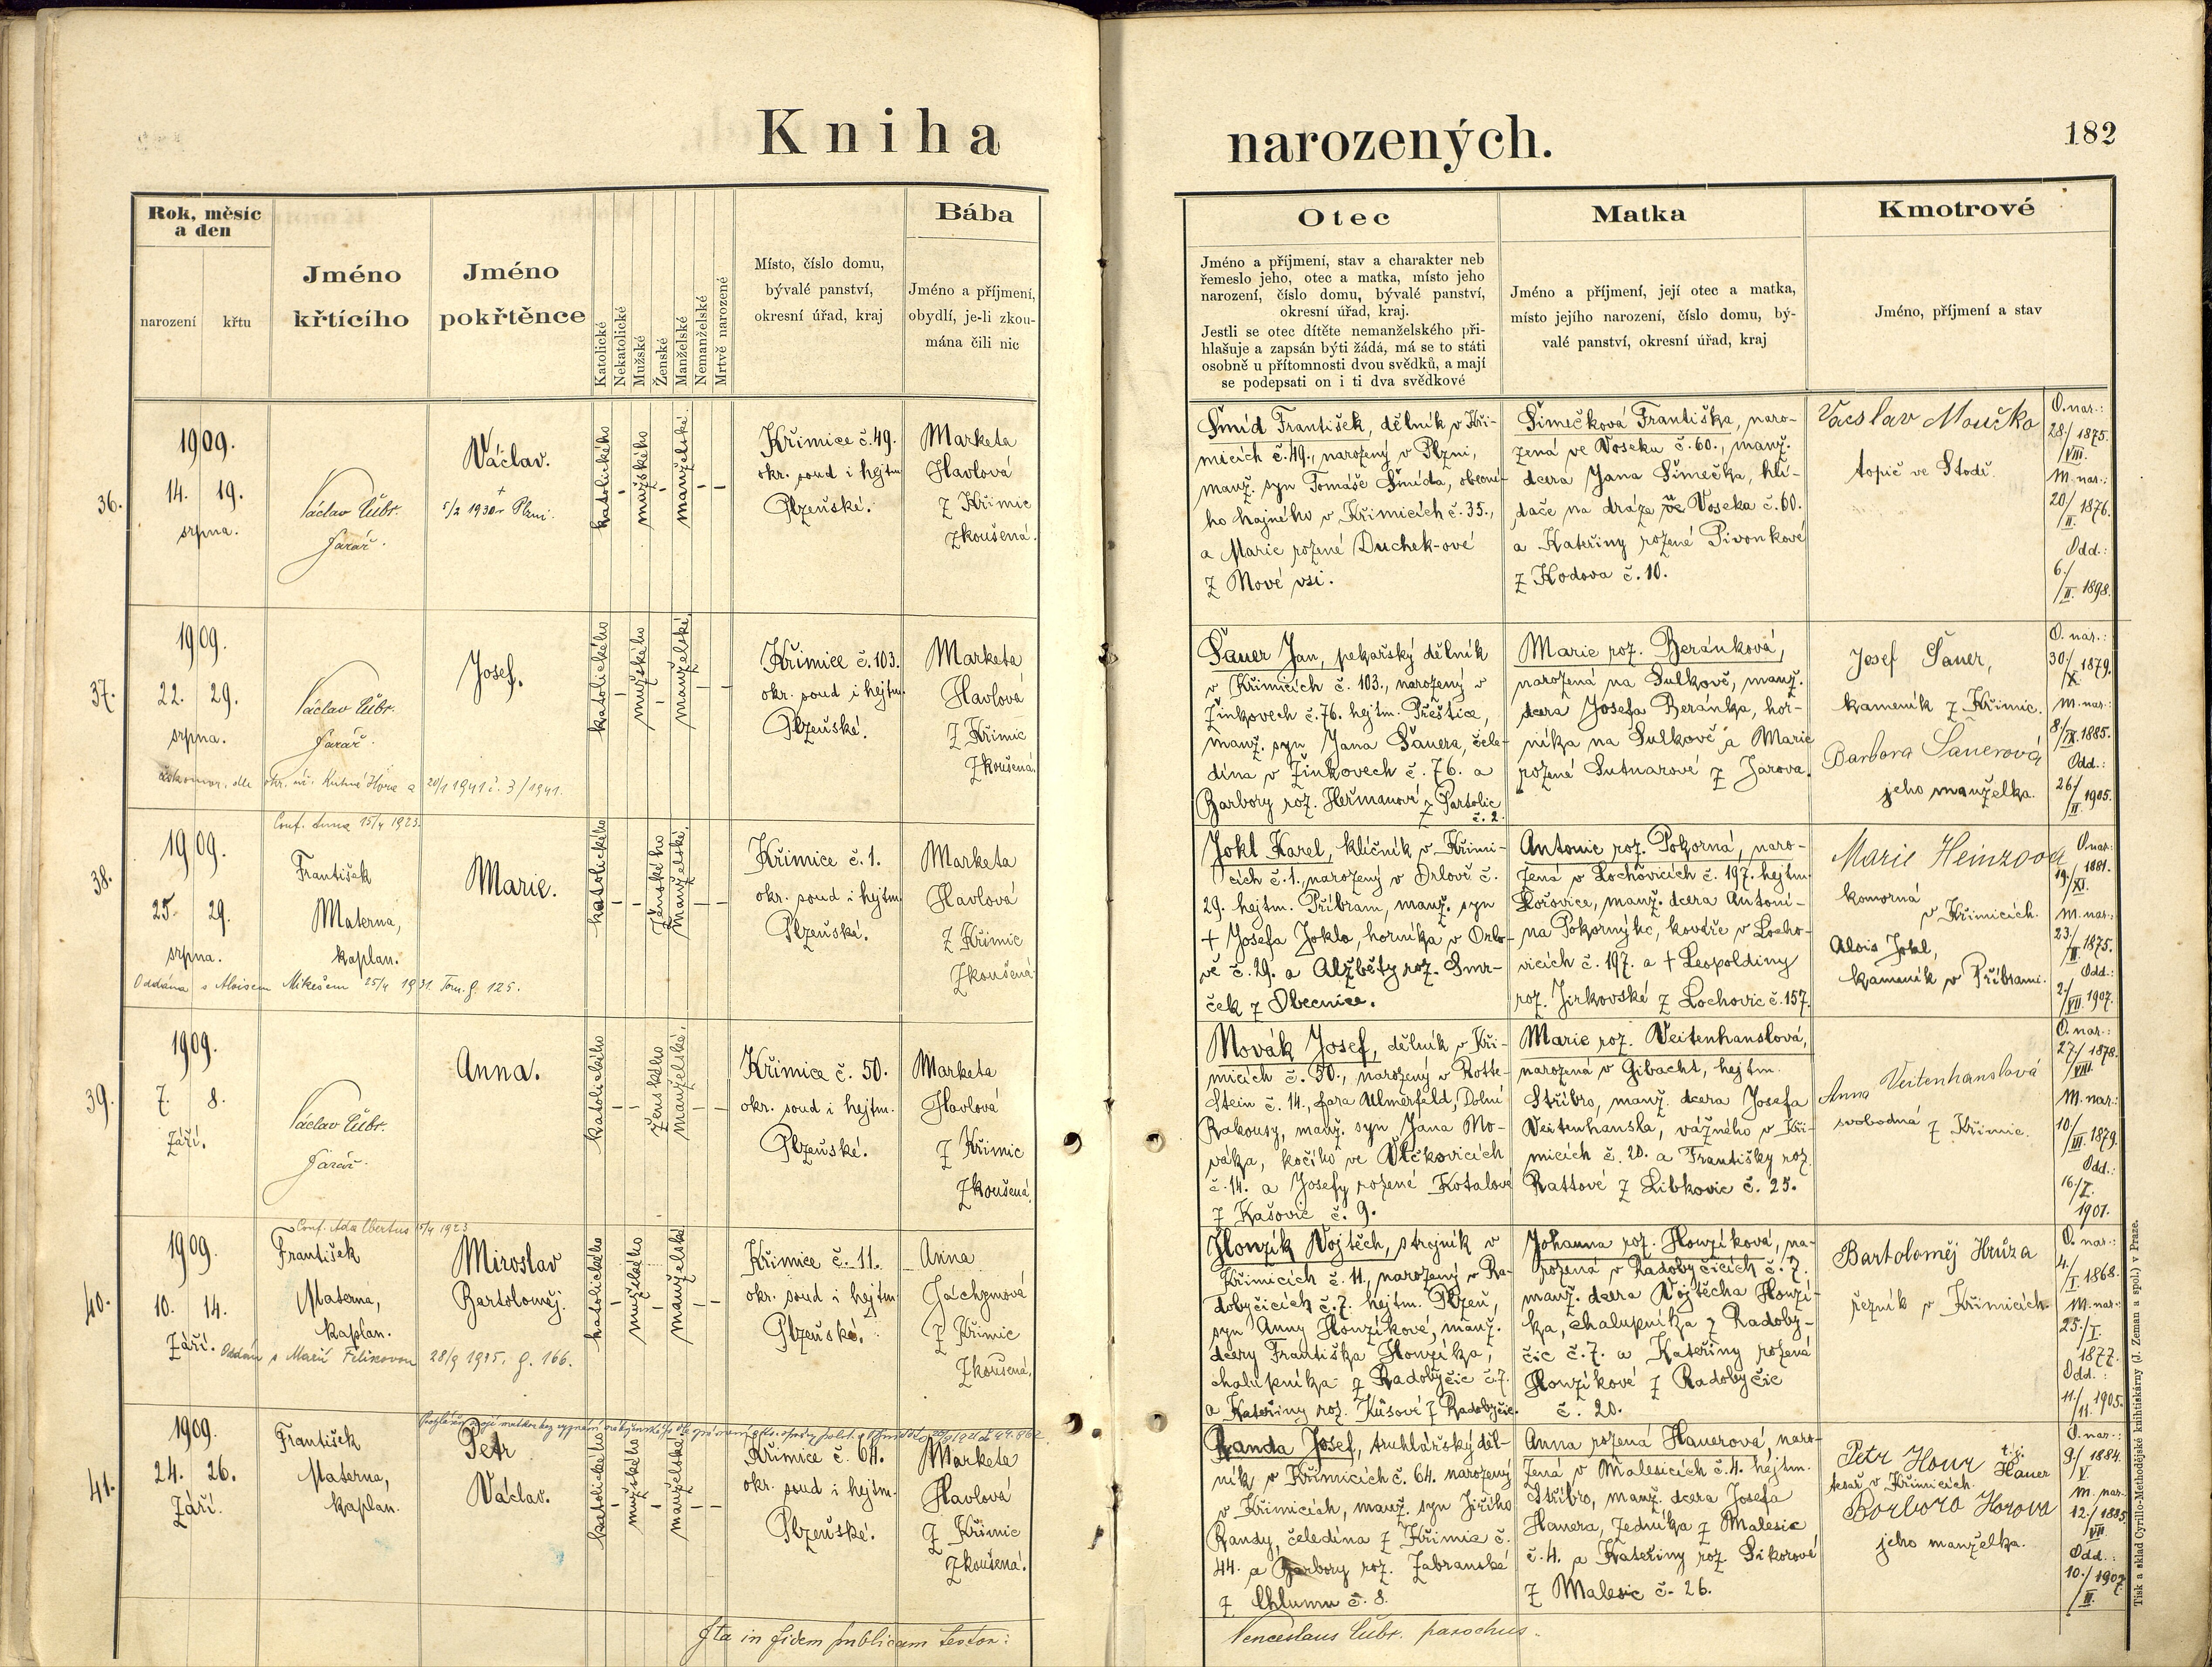 Kniha
narozených.
182
Rok, měsíc
a den
narození
křtu
Jméno
křtícího
Jméno
pokřtěnce
Katolické
Nekatolické
Mužské
Ženské
Manželské
Nemanželské
Mrtvě narozené
Místo, číslo domu,
bývalé panství,
okresní úřad, kraj
Bába
Jméno a příjmení,
obydlí, je-li zkou-
mána čili nic
Otec
Jméno a příjmení, stav a charakter neb
řemeslo jeho, otec a matka, místo jeho
narození, číslo domu, bývalé panství,
okresní úřad, kraj.
Jestli se otec dítěte nemanželského při-
hlašuje a zapsán býti žádá, má se to státi
osobně u přítomnosti dvou svědků, a mají
se podepsati on i ti dva svědkové
Matka
Jméno a příjmení, její otec a matka,
místo jejího narození, číslo domu, bý-
valé panství, okresní úřad, kraj
Kmotrové
Jméno, příjmení a stav
36.
1909.
14. 19.
srpna.
Václav Cubr.
farář.
Václav.
+
5/2 1930 v Plzni.
katolického
mužského
manželské.
Křimice č. 49.
okr. soud i hejtm.
Plzeňské.
Marketa
Havlová
z Křimic
zkoušená.
Šmíd František, dělník v Kři-
micích č. 49., narozený v Plzni,
manž. syn Tomáše Šmída, obecní-
ho hajného v Křimicích č. 35.,
a Marie rozené Duchek-ové
z Nové vsi.
Šimečková Františka, naro-
zená ve Voseku č. 60., manž.
dcera Jana Šimečka, hlí-
dače na dráze ve Voseka č. 60.
a Kateřiny rozené Pivonkové
z Kodova č. 10.
Vacslav Moučka
topič ve Stodě.
O. nar.:
28./VIII. 1875.
M. nar.:
20/II. 1876.
Odd.:
6./II. 1898.
37.
1909.
22. 29.
srpna.
Václav Cubr.
farář.
Josef.
katolického
mužského
manželské.
Křimice č. 103.
okr. soud i hejtm.
Plzeňské.
Marketa
Havlová
z Křimic
zkoušená.
okr. úř. Kutná Hora 20/1 1941 č. 3/1941.
Šauer Jan, pekařský dělník
v Křimicích č. 103., narozený v
Žinkovech č. 76. hejtm. Přeštice,
manž. syn Jana Šauera, čele-
dína v Žinkovech č. 76. a
Barbory roz. Heřmanové z Partolic
č. 2.
Marie roz. Beránková,
narozená na Sulkově, manž.
dcera Josefa Beránka, hor-
níka na Sulkově a Marie
rozené Sutnarové z Jarova.
Josef Šauer,
kameník z Křimic.
Barbora Šauerová
jeho manželka.
O. nar.:
30./X. 1879.
M. nar.:
8/IX. 1885.
Odd.:
26/II. 1905.
38.
Conf. Anna 15/4 1923.
1909.
25. 29.
srpna.
František
Materna,
kaplan.
Marie.
katolického
ženského
manželské.
Křimice č. 1.
okr. soud i hejtm.
Plzeňské.
Marketa
Havlová
z Křimic
zkoušená.
Oddána s Aloisem Mikešem 25/4 1931. Tom. g. 125.
Jokl Karel, klíčník v Křimi-
cích č. 1., narozený v Orlově č.
29. hejtm. Příbram, manž. syn
+ Josefa Jokla, horníka v Orlo-
vě č. 29. a Alžběty roz. Smr-
ček z Obecnice.
Antonie roz. Pokorná, naro-
zená v Lochovicích č. 197. hejtm.
Hořovice, manž. dcera Antoní-
na Pokorného, kováře v Locho-
vicích č. 197. a + Leopoldiny
roz. Jirkovské z Lochovic č. 157.
Marie Heinzova
komorná
v Křimicích.
Alois Jokl,
kameník v Příbrami.
O. nar.
19./XI. 1881.
M. nar.:
23./II. 1875.
Odd.:
2./VII. 1907.
39.
1909.
7. 8.
září.
Václav Cubr.
farář.
Anna.
katolického
ženského
manželské.
Křimice č. 50.
okr. soud i hejtm.
Plzeňské.
Marketa
Havlová
z Křimic
zkoušená.
Novák Josef, dělník v Kři-
micích č. 50., narozený v Rotte-
stein č. 14., fara Ulmerfeld, Dolní
Rakousy, manž. syn Jana No-
váka, kočího ve Vlčkovicích
č. 14. a Josefy rozené Kotalové
z Kašovic č. 9.
Marie roz. Veitenhanslová,
narozená v Gibacht, hejtm.
Stříbro, manž. dcera Josefa
Veitenhansla, vážného v Kři-
micích č. 20. a Františky roz.
Rattové z Libkovic č. 25.
Anna Veitenhanslová
svobodná z Křimic.
O. nar.:
27./VIII. 1878.
M. nar.:
10/III. 1879.
Odd.:
16./I.
1901.
40.
Conf. Adalbertus 15/4 1923
1909.
10. 14.
září.
František
Materna,
kaplan.
Miroslav
Bartoloměj.
katolického
mužského
manželské
Křimice č. 11.
okr. soud i hejtm.
Plzeňské.
Anna
Jáchymová
z Křimic
zkoušená.
Oddán s Marií Felixovou 28/9 1935. g. 166.
Honzík Vojtěch, strojník v
Křimicích č. 11., narozený v Ra-
dobyčicích č. 7. hejtm. Plzeň,
syn Anny Honzíkové, manž.
dcery Františka Honzíka,
chalupníka z Radobyčic č. 7.
a Kateřiny roz. Kůsové z Radobyčic.
Johanna roz. Honzíková, na-
rozená v Radobyčicích č. 7.
manž. dcera Vojtěcha Honzí-
ka, chalupníka z Radoby-
čic č. 7. a Kateřiny rozené
Honzíkové z Radobyčic
č. 20.
Bartoloměj Hrůza
řezník v Křimicích.
O. nar.:
4./I. 1868.
M. nar.:
25./I.
1877.
Odd.:
11./11. 1905.
41.
1909.
24. 26.
září.
František
Materna,
kaplan.
Petr
Václav.
katolického
mužského
manželské.
Křimice č. 64.
okr. soud i hejtm.
Plzeňské.
Marketa
Havlová
z Křimic
zkoušená.
Randa Josef, truhlářský děl-
ník v Křimicích č. 64. narozený
v Křimicích, manž. syn Jiřího
Randy, čeledína z Křimic č.
44. a Barbory roz. Zábranské
z Chlumu č. 8.
Anna rozená Hauerová, naro-
zená v Malesicích č. 4. hejtm.
Stříbro, manž. dcera Josefa
Hauera, zedníka z Malesic
č. 4. a Kateřiny roz. Sikorové
z Malesic č. 26.
Petr Hour t. j. Hauer
tesař v Křimicích.
Borbora Horova
jeho manželka.
O. nar.:
9./V. 1884.
M. nar.
12./VII. 1885.
Odd.:
10./II. 1907.
Ita in fidem publicam testor:
Venceslaus Cubr. parochus.
Tisk a sklad Cyrillo-Methodějské knihtiskárny (J. Zeman a spol.) v Praze.